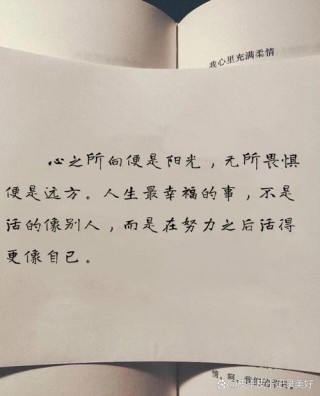 我心里充满柔情
心之所向便是阳光，无所畏惧
便是远方。人生最幸福的事，不是
活的像别人，而是在努力之后活得
更像自己。